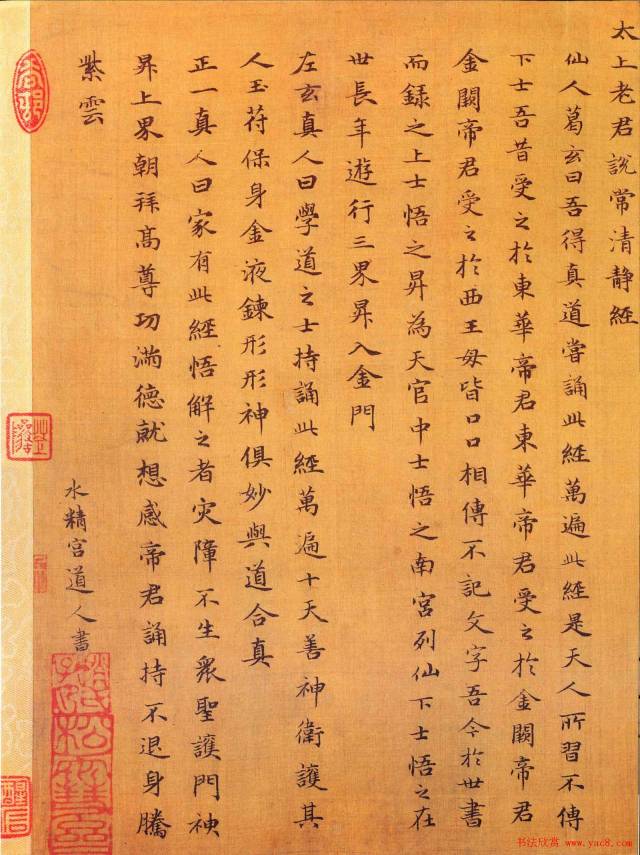 太上老君說常清靜經
仙人葛玄曰吾得真道嘗誦此經萬遍此經是天人所習不傳
下士吾昔受之於東華帝君東華帝君受之於金闕帝君
金闕帝君受之於西王母皆口口相傳不記文字吾今於世書
而録之上士悟之昇為天官中士悟之南宮列仙下士悟之在
世長年遊行三界昇入金門
左玄真人曰學道之士持誦此經萬遍十天善神衛護其
人玉苻保身金液鍊形形神俱妙與道合真
正一真人曰家有此經悟解之者灾障不生衆聖護門神
昇上界朝拜高尊功滿德就想感帝君誦持不退身騰
紫雲
水精宮道人書
松雪
书法欣赏 www.yac8.com